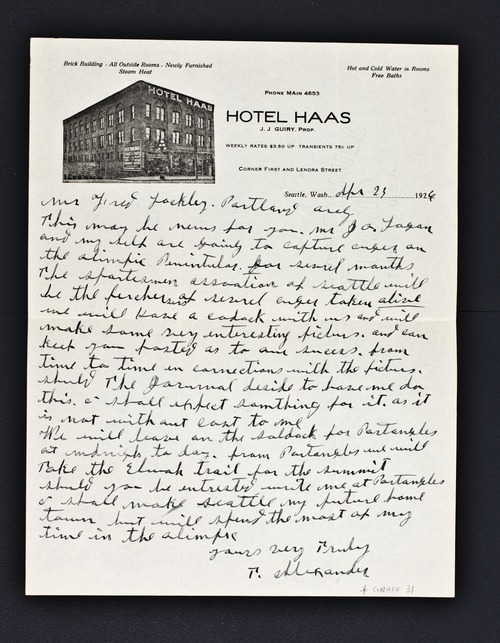 Brick Building - All Outside Rooms - Newly Furnished
Steam Heat
Hot and Cold Water in Rooms
Free Baths
HOTEL HAAS
PHONE MAIN 4653
HOTEL HAAS
J. J. GUIRY, PROP.
WEEKLY RATES $3.50 UP TRANSIENTS 75¢ UP
CORNER FIRST AND LENORA STREET
Seattle, Wash., Apr 23 1926
Mr Fred Lockley. Portland
This may be news for you. Mr J A Logan
and my self are going to capture on
the alimpic Penintular. for sevrel months
The sportesmen assoation of seattle will
be the of sevrel taken alive
we will have a codack with us and will
make some very interesting picturs. and can
keep you posted as to our sucess. from
time to time in connections with the picturs.
should The Journal desire to have me do
this. I shall expect somthing for it. as it
is not without cost to me
We will leave on the Soldock for Portangles
at midnigh to day. from Portangles we will
Take the Elwah trail for the summit
should you be entrested write me at Portangles
I shall make seattle my future home
town but will spend the most of my
time in the alimpic
yours very Truly
T. Alexander